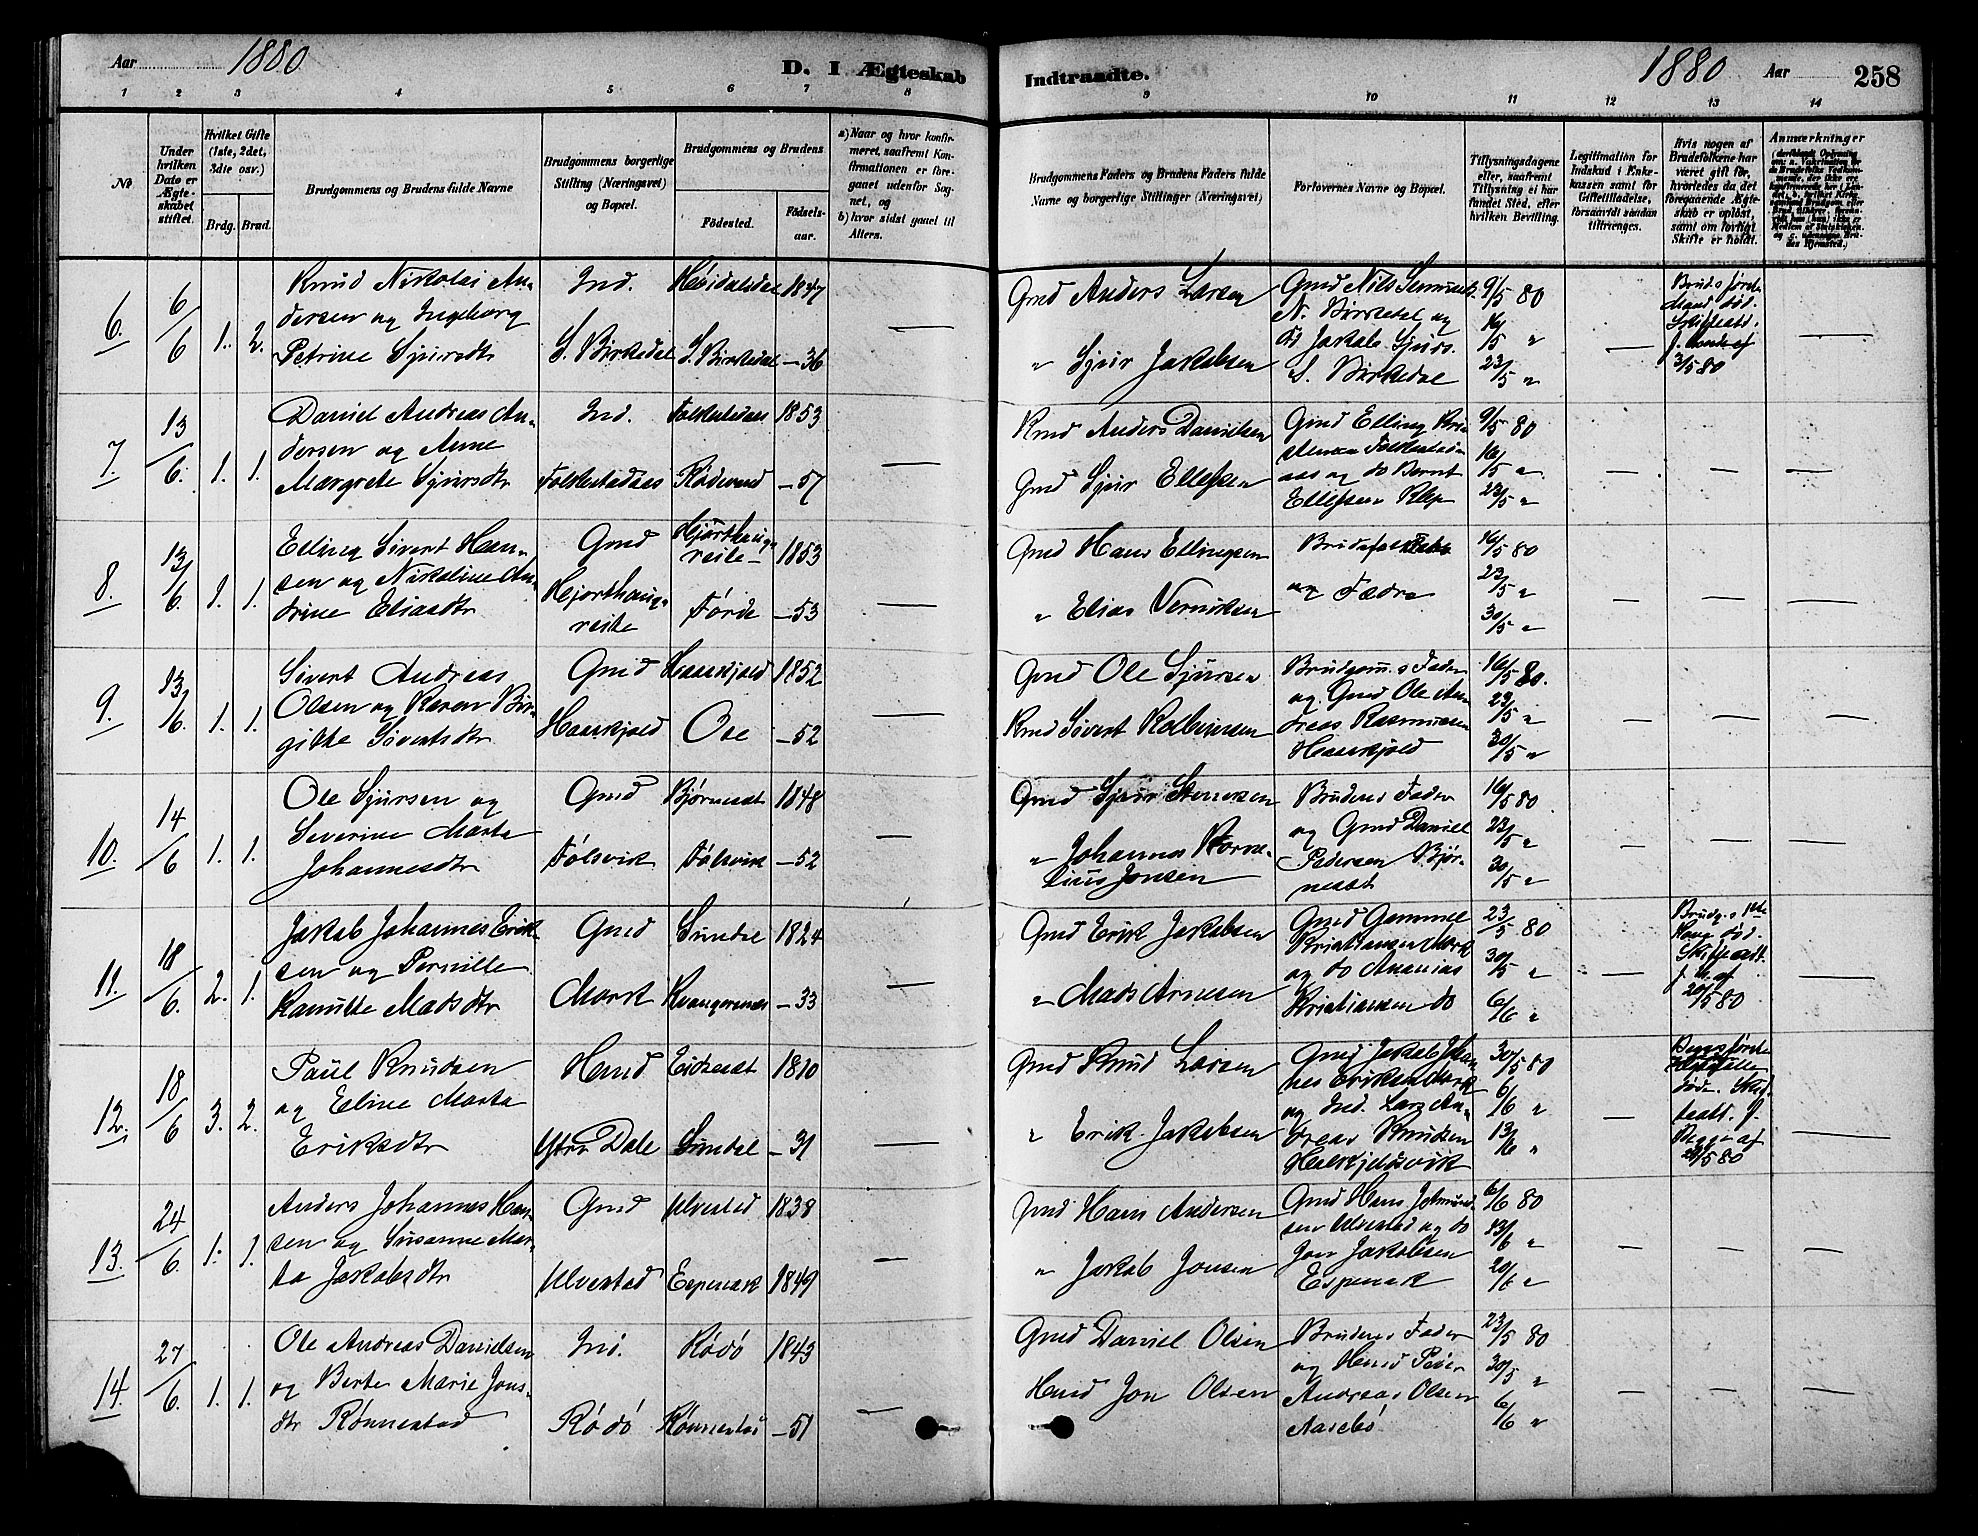 Aar 1880 D. I Ægteskab
Indtraadte. 1880 Aar 258
1 2 3 4 5 6 7 8
9 10 11 12 13 14
No
Under hvilken Dato er Ægteskabet stiftet.
Hvilket Gifte (1ste, 2det, 3die osv.)
Brdg. Brud.
Brudgommens og Brudens fulde Navne
Brudgommens borgerlige Stilling (Næringsvei) og Bopæl.
Brudgommens og Brudens
Fødested. Fødsels-aar.
a) Naar og hvor konfirmeret, saafremt Konfirmationen er foregaaet udenfor Sognet, og
b) hvor sidst gaaet til Alters.
Brudgommens Faders og Brudens Faders fulde Navne og borgerlige Stillinger (Næringsvei)
Forlovernes Navne og Bopæl.
Tillysningsdagene eller, saafremt Tillysning ei har fundet Sted, efter hvilken Bevilling.
Legitimation for Indskud i Enkekassen samt for Giftetilladelse, forsaavidt saadan tiltrænges.
Hvis nogen af Brudefolkene har været gift før, hvorledes da det foregaaende Ægteskab er opløst, samt om lovligt Skifte er holdt.
Anmærkninger
6. 6/6 1. 2.
Knud Nikolai An-
dersen og Ingeborg
Petrine Sjursdtr
Ind.
S. Birkedal
1847
S. Birkedal – 36
—
Gmd Anders Larsen
" Sjur Jakobsen
N. Birkedal og
S. Birkedal
9/5 80
16/5 "
23/5 "
—
3/5 80
—
7. 13/6. 1. 1.
Daniel Andreas An-
dersen og Anne
Margrete Sjursdtr
Ind.
Folkestadaas
Folkestadaas 1853
Rødesund – 57
—
Kmd Anders Danielsen
Gmd Sjur Ellefsen
Gmd Elling Kri-
aas og do Bernt
Ellefsen Klep
9/5 80
16/5 "
23/5 "
— — —
8. 13/6. 1. 1.
Elling Sivert Han-
sen og Nikoline An-
drine Eliasdtr
Gmd
Hjorthaug-
reite
Hjorthaug-
reite – 1853
Førde – 53
—
Gmd Hans Ellingsen
" Elias
og Fædre
16/5 80
23/5 "
30/5 "
— — —
9. 13/6. 1. 1.
Sivert Andreas
Olsen og Karen Bir-
gitte Sivertsdtr
Gmd
Haaskjold
Haaskjold 1852
Ose – 52
—
Gmd Ole Sjursen
Kmd Sivert Kolbensen
Brudgom.s Fader
og Gmd Ole An-
dreas Rasmussen
Haaskjold
16/5 80.
23/5 "
30/5 "
— — —
10. 14/6 1. 1.
Ole Sjursen og
Severine Marta
Johannesdtr
Gmd
Følsvik
Bjørneset 1848
Følsvik – 52
—
Gmd Sjur Stenersen
" Johannes Korne-
lius Jonsen
Brudens Fader
og Gmd Daniel
Pedersen Bjør-
neset
16/5 80
23/5 "
30/5 "
— — —
11. 18/6. 2. 1.
Jakob Johannes Erik-
sen og Pernille
Kamitte Madsdtr
Gmd
Mork
Sundal 1824
Kvangersnes – 33
—
Gmd Erik Jakobsen
" Mads Arnesen
Gmd Gammel
Kristiansen Mork
og do Ananias
Kristiansen do
23/5 80
30/5 "
6/6 "
—
20/5 80
—
12. 18/6 3. 2.
Paul Knudsen
og Eline Marta
Eriksdtr
Hmd
Ytre Dale
Eidheset 1810
Sundal – 31
—
Gmd Knud Larsen
" Erik Jakobsen
Gmd Jakob Johan-
nes Eriksen Mork
og Ind. Lars An-
dreas Knudsen
30/5 80
6/6 "
13/6 "
—
/5 80
—
13. 24/6. 1. 1.
Anders Johannes Han-
sen og Susanne Mar-
ta Jakobsdtr
Gmd
Ulvestad
Ulvestad 1838
Espenak 1849
—
Gmd Hans Andersen
" Jakob Jonsen
Gmd Hans
sen Ulvestad og do
Jon Jakobsen
Espenak
6/6 80
13/6 "
20/6 "
— — —
14. 27/6. 1. 1.
Ole Andreas Danielsen
og Berte Marie Jons-
dtr Rønnestad
Ind.
Rødø
Rødø 1843
Rønnestad – 51
—
Gmd Daniel Olsen
Hmd Jon Olsen
Brudens Fader
og Hmd Peder
Andreas Olsen
Aasebø
23/5 80
30/5 "
6/6 "
— — —